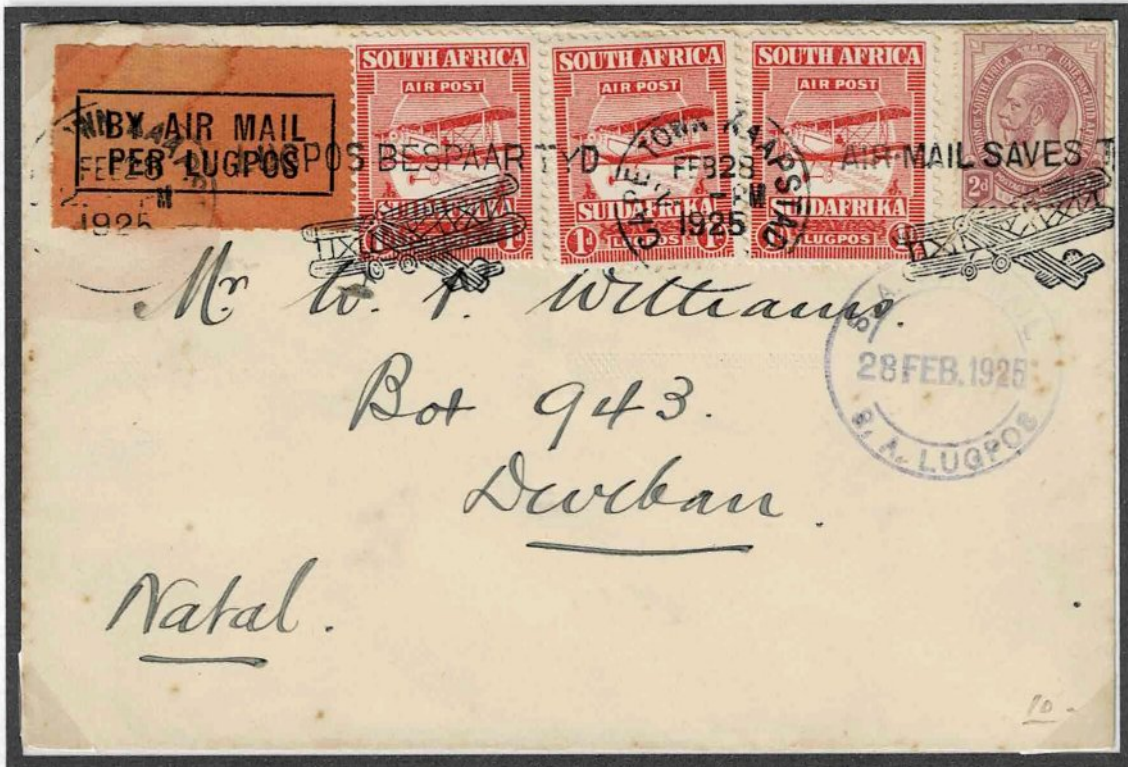 BY AIR MAIL
PER LUGPOS
FEB 28
1925
SOUTH AFRICA
AIR POST
SUIDAFRIKA
1d 1d
SOUTH AFRICA
AIR POST
SUIDAFRIKA
1d LUGPOS 1d
SOUTH AFRICA
AIR POST
SUIDAFRIKA
LUGPOS
2d
LUGPOS BESPAAR TYD
CAPE TOWN KAAPSTAD
FEB 28
2 - PM
1925
AIR MAIL SAVES T
Mr W. P. Williams.
Box 943.
Durban.
Natal.
S. A.
28 FEB. 1925
S. A. LUGPOS
10